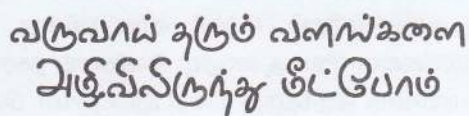 வருவாய் தரும் வளங்களை
அழிவிலிருந்து மீட்போம்